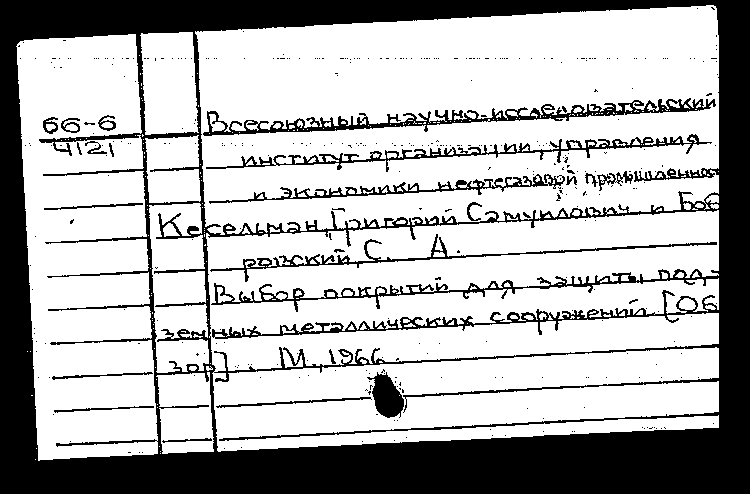 66-6
4121
Всесоюзный научно-исследовательский
институт организации, управления
и экономики нефтегазовой промышленнос
Кесельман, Григорий Самуилович и Боб
ровский, С. А.
Выбор покрытий для защиты под-
земных металлических сооружений. [Об
зор]. М., 1966.